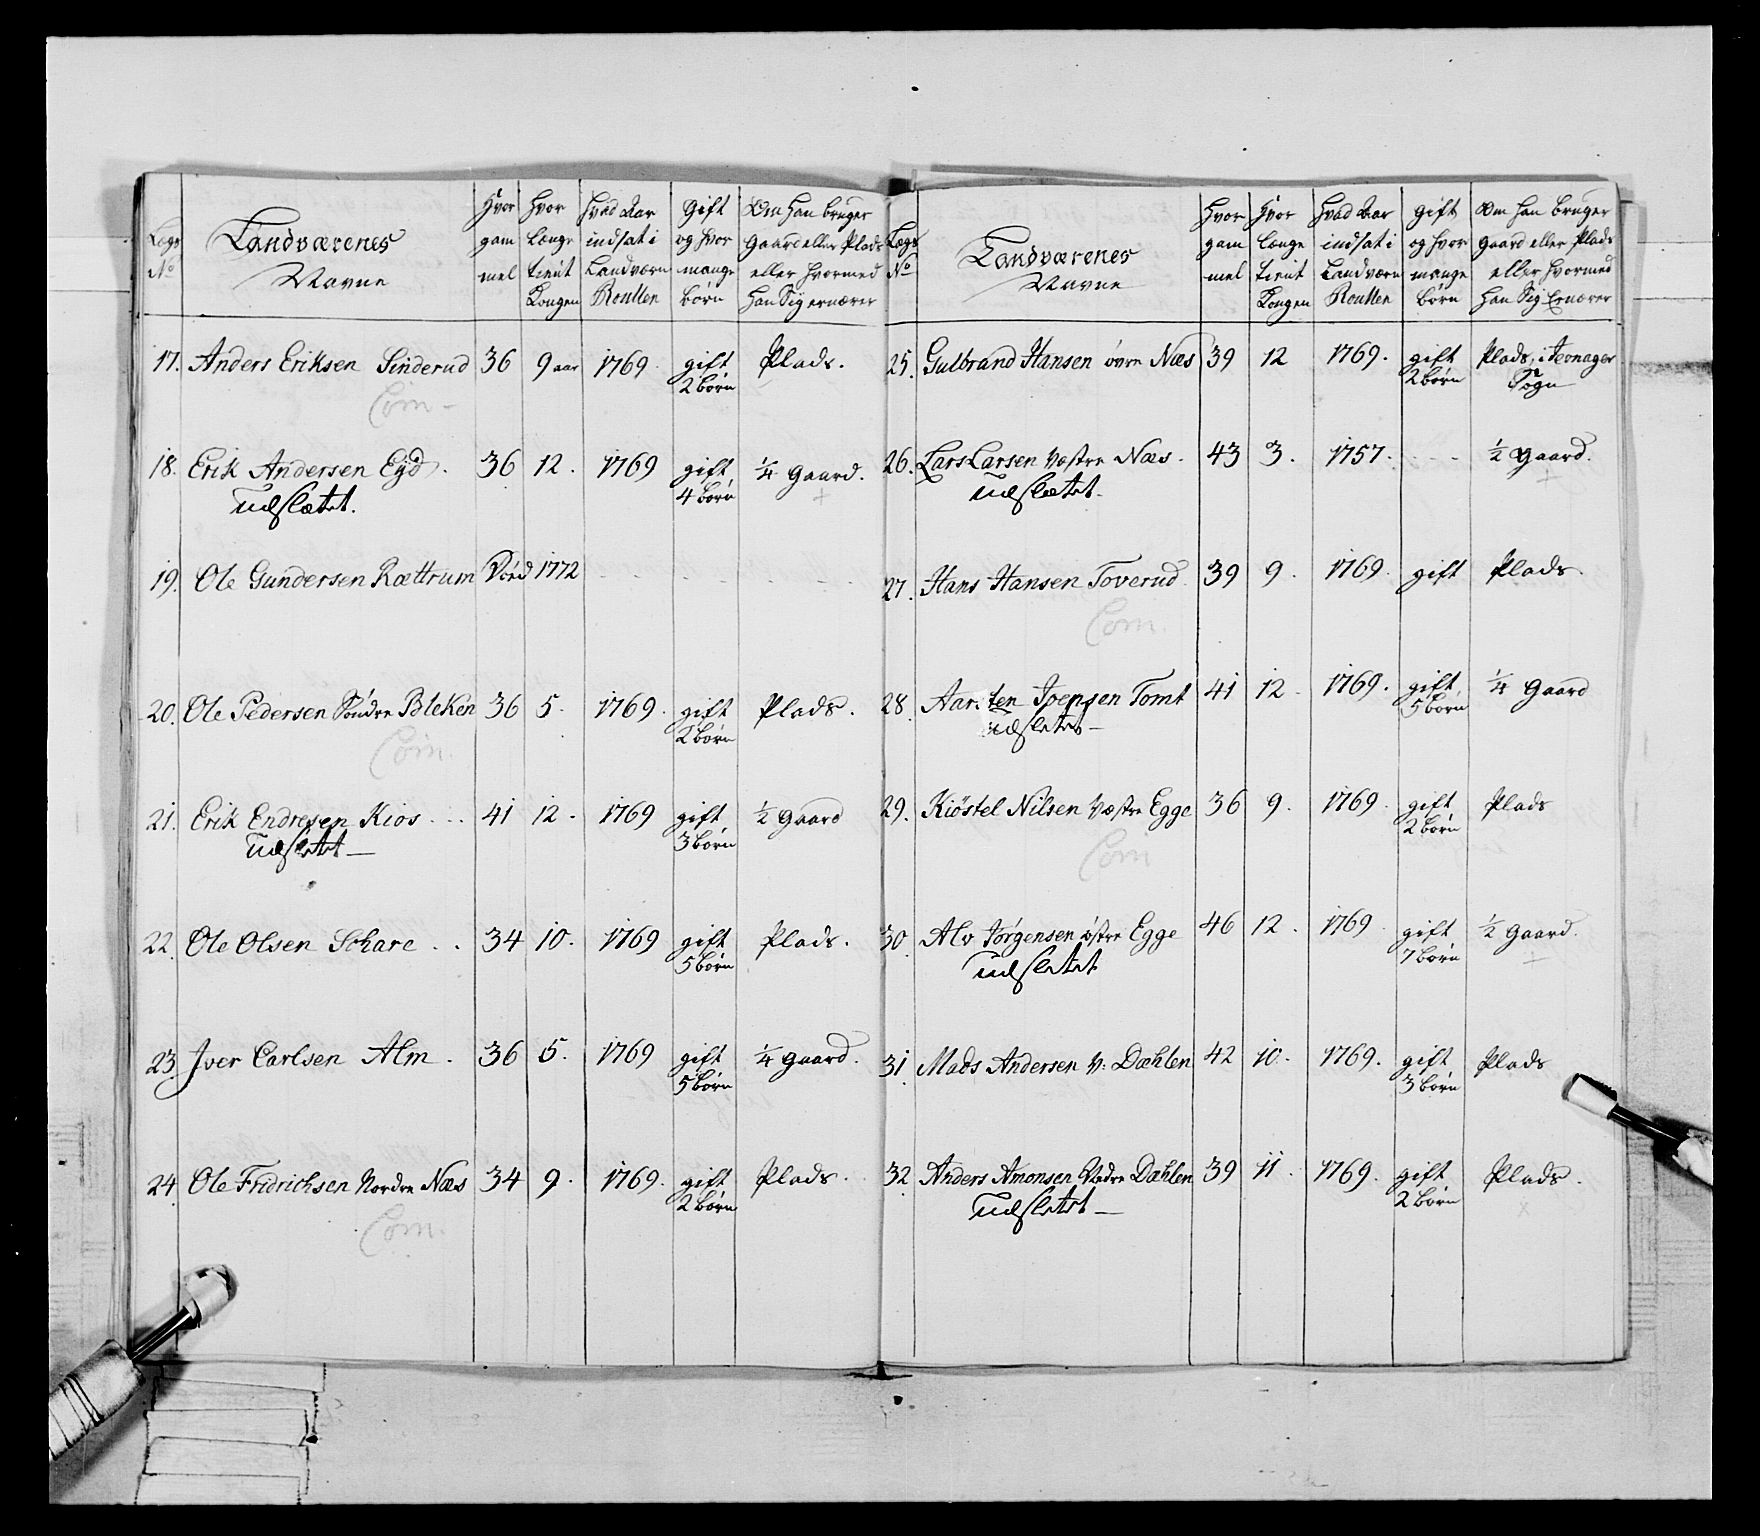 Lægs No | Landværenes Navne | Hvor gam mel | Hvor længe tient Kongen | Hvad Aar indsat i Landværn Roullen | Gift og hvor mange børn | Om han bruger Gaard eller Plads eller hvormed han Sig ernærer
17. Anders Eriksen Sinderud 36 9 aar 1769 gift 2 børn Plads.
Com-
18. Erik Andersen Eÿd. 36 12. 1769 gift 4 børn ¼ Gaard.
udslætet.
19. Ole Gundersen Rættrum Död 1772
20. Ole Pedersen Söndre Bleken 36 5. 1769. gift 2 børn Plads.
Com.
21. Erik Endresen Kios 41 12. 1769 gift 3 børn ½ Gaard
udsletet
22. Ole Olsen Schare 34 10. 1769 gift 5 børn Plads.
23. Iver Carlsen Alm. 36 5. 1769 gift 5 børn ¼ gaard.
24. Ole Fridrichsen Nordre Næs 34 9. 1769. gift 2 børn Plads.
Com.
Lægs No | Landværenes Navne | Hvor gam mel | Hvor længe tient Kongen | Hvad Aar indsat i Landværn Roullen | gift og hvor mange børn | Om han bruger gaard eller Plads eller hvormed han Sig Ernærer
25. Gulbrand Hansen övre Næs 39 12 1769. gift 2 børn Plads, i Jevnager Sogn
26. Lars Larsen Væstre Næs. 43 3. 1757. ½ gaard.
udslætet.
27. Hans Hansen Toverud 39 9. 1769. gift Plads.
Com.
28. Tomt 41 12. 1769. gift 5 børn ¼ Gaard
udsletet
29. Kiöstel Nilsen Væstre Egge 36 9. 1769. gift 2 børn Plads
Com
30. Alv Jörgensen östre Egge 46 12. 1769. gift 7 børn ½ Gaard.
udsletet
31. Mads Andersen V: Dæhlen 42 10. 1769. gift 3 børn Plads
32. Anders Amonsen Dæhlen 39 11. 1769. gift 2 børn Plads.
udsletet